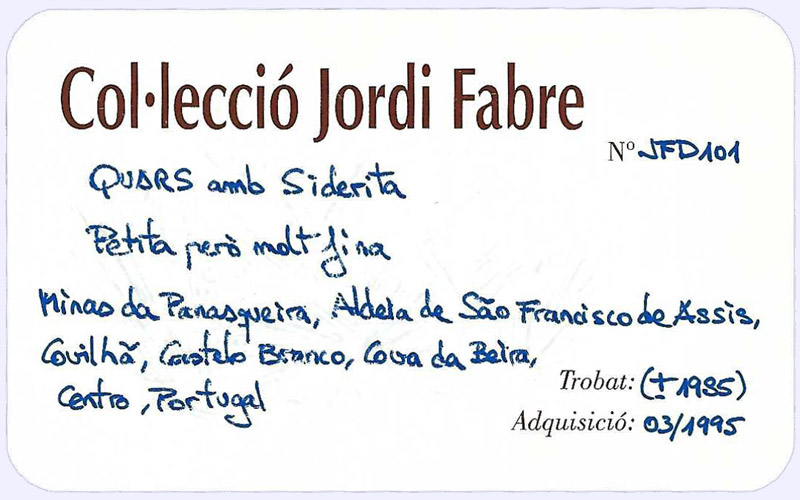 Col·lecció Jordi Fabre
Nº JFD101
QUARS amb Siderita
Petita però molt fina
Minas da Panasqueira, Aldeia de São Francisco de Assis,
Covilhã, Castelo Branco, Cova da Beira,
Centro, Portugal
Trobat: (±1985)
Adquisició: 03/1995